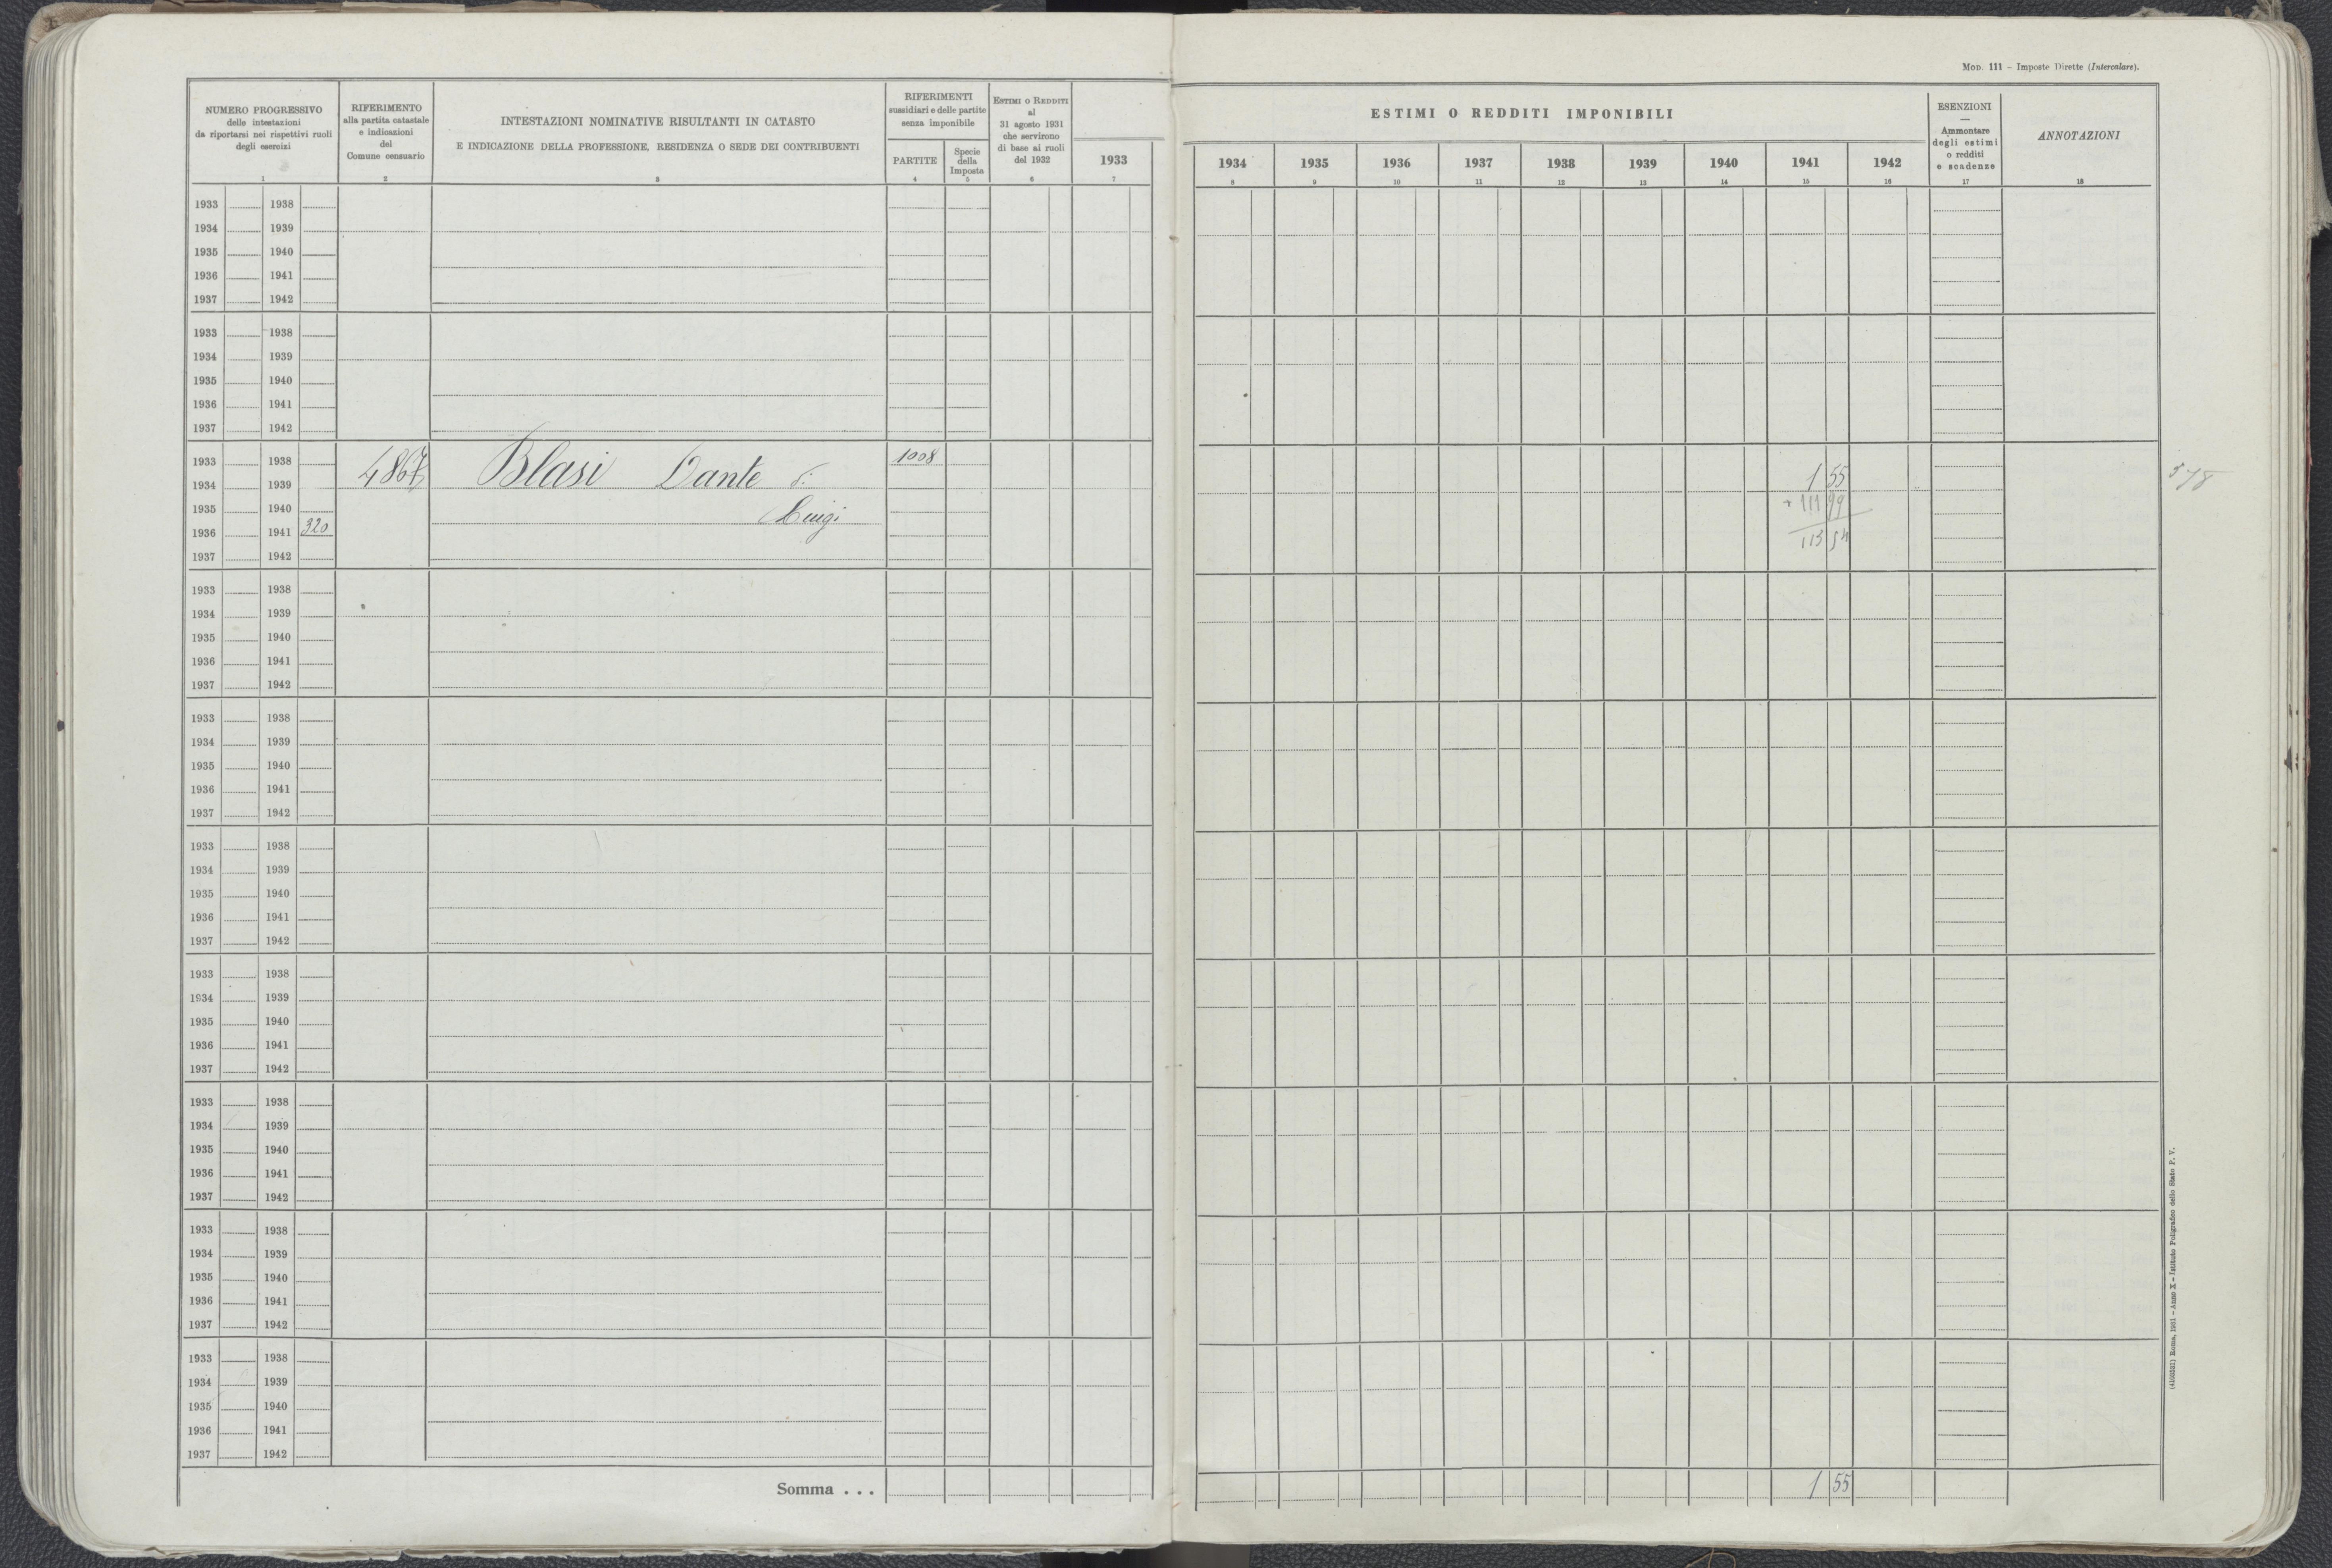 Mod. 111 - Imposte Dirette (Intercalare).
NUMERO PROGRESSIVO
delle intestazioni
da riportarsi nei rispettivi ruoli
degli esercizi
1
RIFERIMENTO
alla partita catastale
e indicazioni
del
Comune censuario
2
INTESTAZIONI NOMINATIVE RISULTANTI IN CATASTO
E INDICAZIONE DELLA PROFESSIONE, RESIDENZA O SEDE DEI CONTRIBUENTI
3
RIFERIMENTI
sussidiari e delle partite
senza imponibile
PARTITE
4
Specie
della
Imposta
5
Estimi o Redditi
al
31 agosto 1931
che servirono
di base ai ruoli
del 1932
6
1933
7
ESTIMI O REDDITI IMPONIBILI
1934 1935 1936 1937 1938 1939 1940 1941 1942
8 9 10 11 12 13 14 15 16
ESENZIONI
—
Ammontare
degli estimi
o redditi
e scadenze
17
ANNOTAZIONI
18
1933 1938
1934 1939
1935 1940
1936 1941
1937 1942
1933 1938
1934 1939
1935 1940
1936 1941
1937 1942
1933 1938 4867 Blasi Dante di 1008 1 55 578
1934 1939
1935 1940 Luigi + 111 99
1936 1941 320 113 54
1937 1942
1933 1938
1934 1939
1935 1940
1936 1941
1937 1942
1933 1938
1934 1939
1935 1940
1936 1941
1937 1942
1933 1938
1934 1939
1935 1940
1936 1941
1937 1942
1933 1938
1934 1939
1935 1940
1936 1941
1937 1942
1933 1938
1934 1939
1935 1940
1936 1941
1937 1942
1933 1938
1934 1939
1935 1940
1936 1941
1937 1942
1933 1938
1934 1939
1935 1940
1936 1941
1937 1942
Somma . . . 1 55
Roma, 1931 - Anno X - Istituto Poligrafico dello Stato P. V.